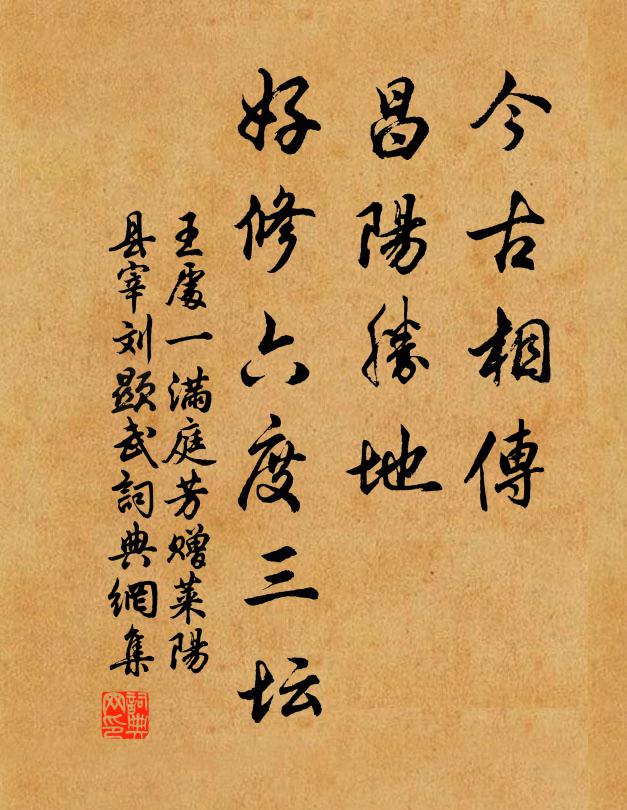 今古相傳
昌陽勝地
好修六度三坛
王處一满庭芳赠莱陽
县宰刘顯武詞典網集
詞典網印